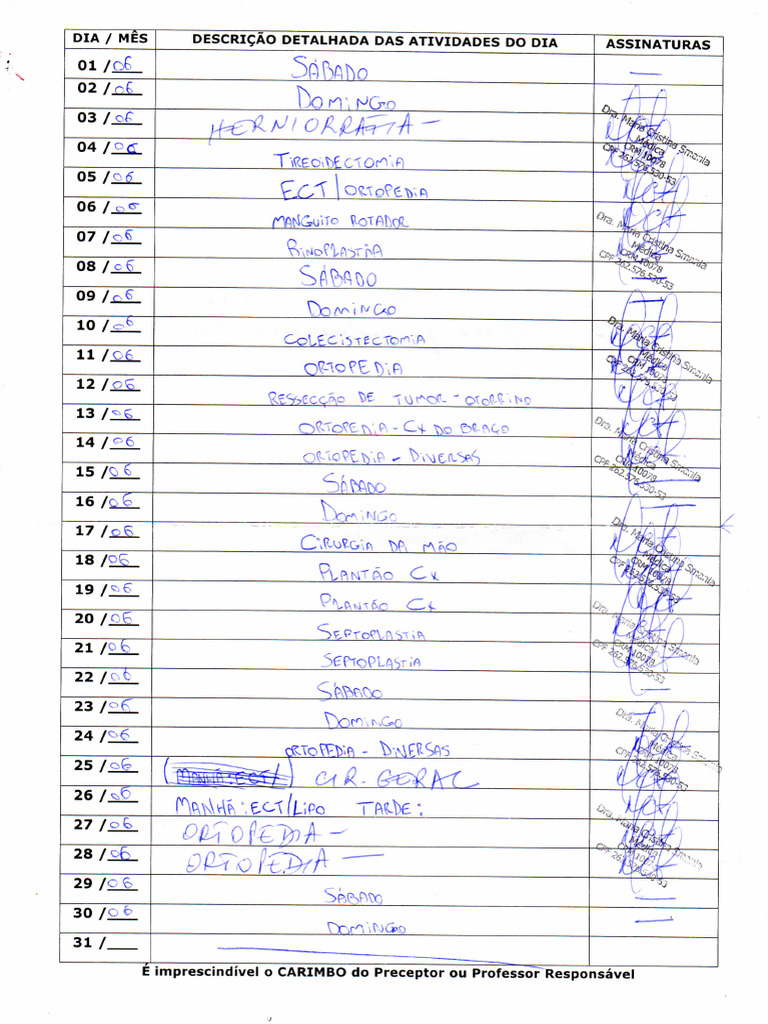 DIA / MÊS DESCRIÇÃO DETALHADA DAS ATIVIDADES DO DIA ASSINATURAS
01 /06 SÁBADO —
02 /06 DOMINGO —
03 /06 HERNIORRAFIA -
04 /06 TIREOIDECTOMIA
05 /06 ECT/ORTOPEDIA
06 /06 MANGUITO ROTADOR
07 /06 RINOPLASTIA
08 /06 SÁBADO —
09 /06 DOMINGO —
10 /06 COLECISTECTOMIA
11 /06 ORTOPEDIA
12 /06 RESSECÇÃO DE TUMOR - OTORRINO
13 /06 ORTOPEDIA - CX DO BRAÇO
14 /06 ORTOPEDIA - DIVERSAS
15 /06 SÁBADO —
16 /06 DOMINGO —
17 /06 CIRURGIA DA MÃO
18 /06 PLANTÃO CX
19 /06 PLANTÃO CX
20 /06 SEPTOPLASTIA
21 /06 SEPTOPLASTIA
22 /06 SÁBADO —
23 /06 DOMINGO —
24 /06 ORTOPEDIA - DIVERSAS
25 /06 (MANHÃ: ECT/) CIR. GERAL
26 /06 MANHÃ: ECT/LIPO TARDE:
27 /06 ORTOPEDIA -
28 /06 ORTOPEDIA —
29 /06 SÁBADO —
30 /06 DOMINGO —
31 /
Dra. Maria Cristina Smania
Médica
CRM 10078
CPF 262.576.530-53
Dra. Maria Cristina Smania
Médica
CRM 10078
CPF 262.576.530-53
Dra. Maria Cristina Smania
Médica
CRM 10078
CPF 262.576.530-53
Dra. Maria Cristina Smania
Médica
CRM 10078
CPF 262.576.530-53
Dra. Maria Cristina Smania
Médica
CRM 10078
CPF 262.576.530-53
Dra. Maria Cristina Smania
Médica
CRM 10078
CPF 262.576.530-53
Dra. Maria Cristina Smania
Médica
CRM 10078
CPF 262.576.530-53
Dra. Maria Cristina Smania
Médica
CRM 10078
CPF 262.576.530-53
É imprescindível o CARIMBO do Preceptor ou Professor Responsável